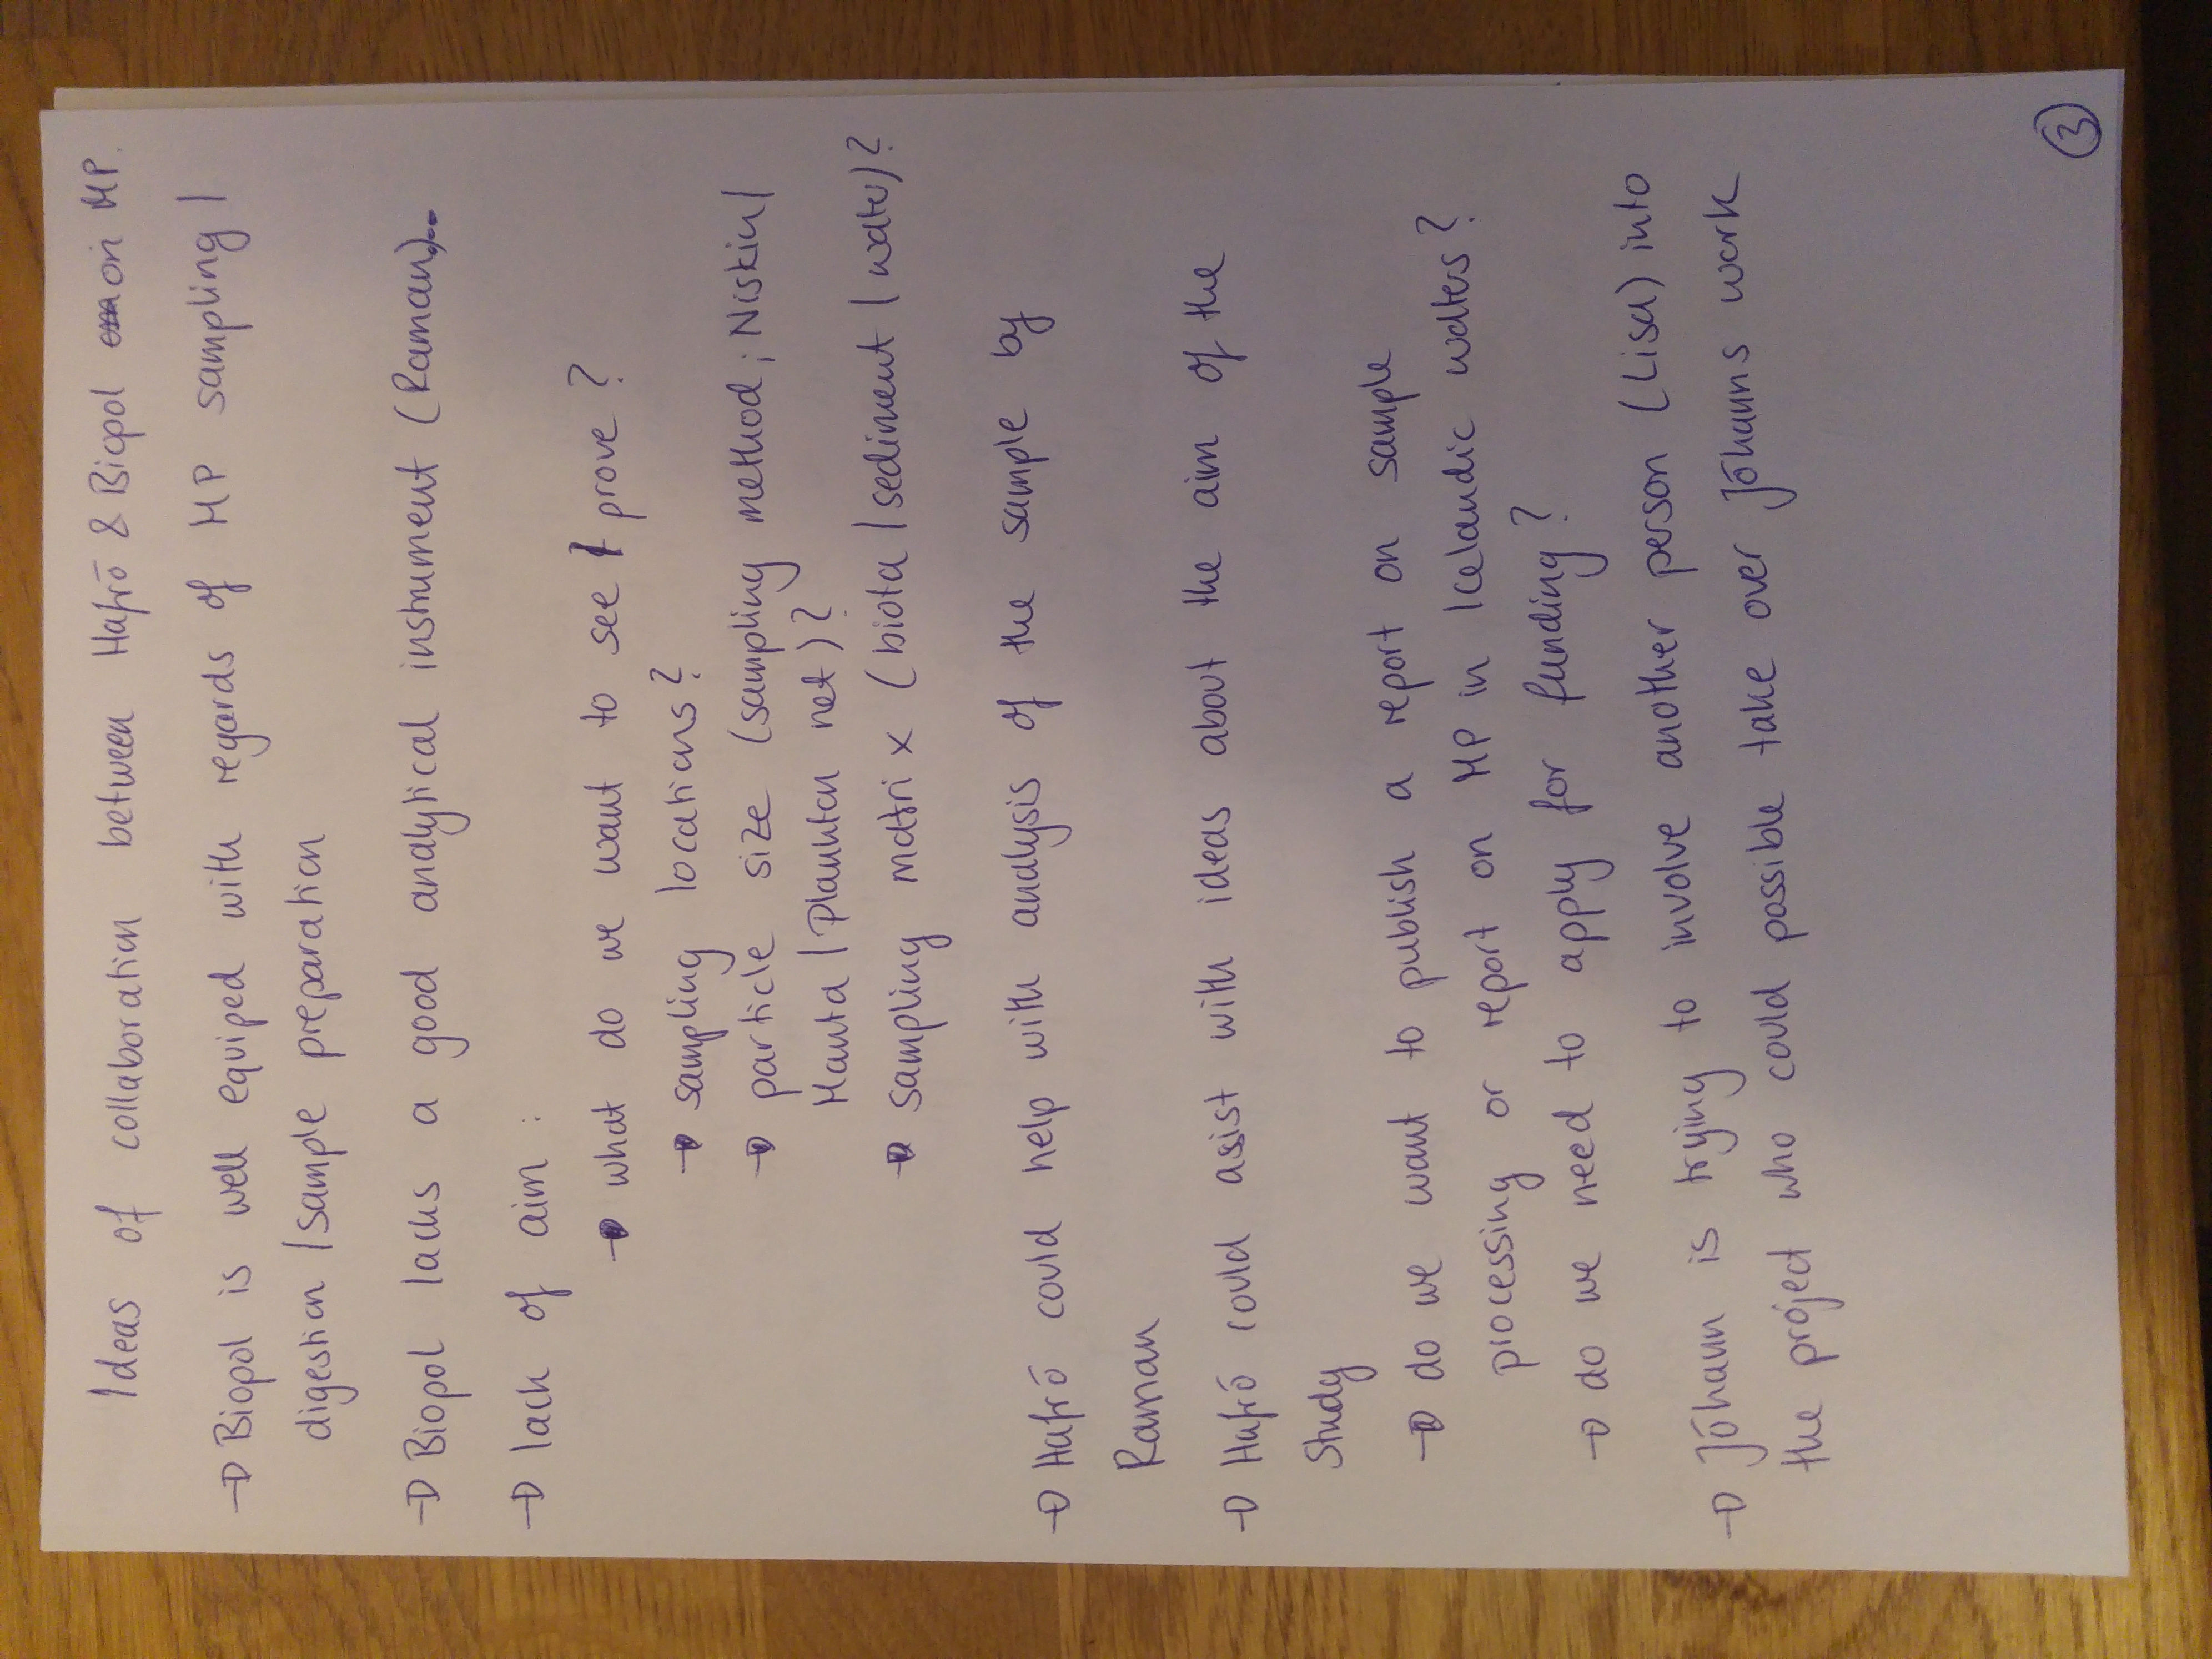 Ideas of collaboration between Hafró & Biopol on MP.
→ Biopol is well equiped with regards of MP sampling /
digestion / sample preparation
→ Biopol lacks a good analytical instrument (Raman)...
→ lack of aim :
→ what do we want to see / prove ?
→ sampling locations ?
→ particle size (sampling method ; Niskin /
Manta / Plankton net) ?
→ sampling matrix (biota / sediment / water) ?
→ Hafró could help with analysis of the sample by
Raman
→ Hafró could assist with ideas about the aim of the
Study
→ do we want to publish a report on sample
processing or report on MP in Icelandic waters ?
→ do we need to apply for funding ?
→ Jóhann is trying to involve another person (Lisa) into
the project who could possible take over Jóhanns work
3